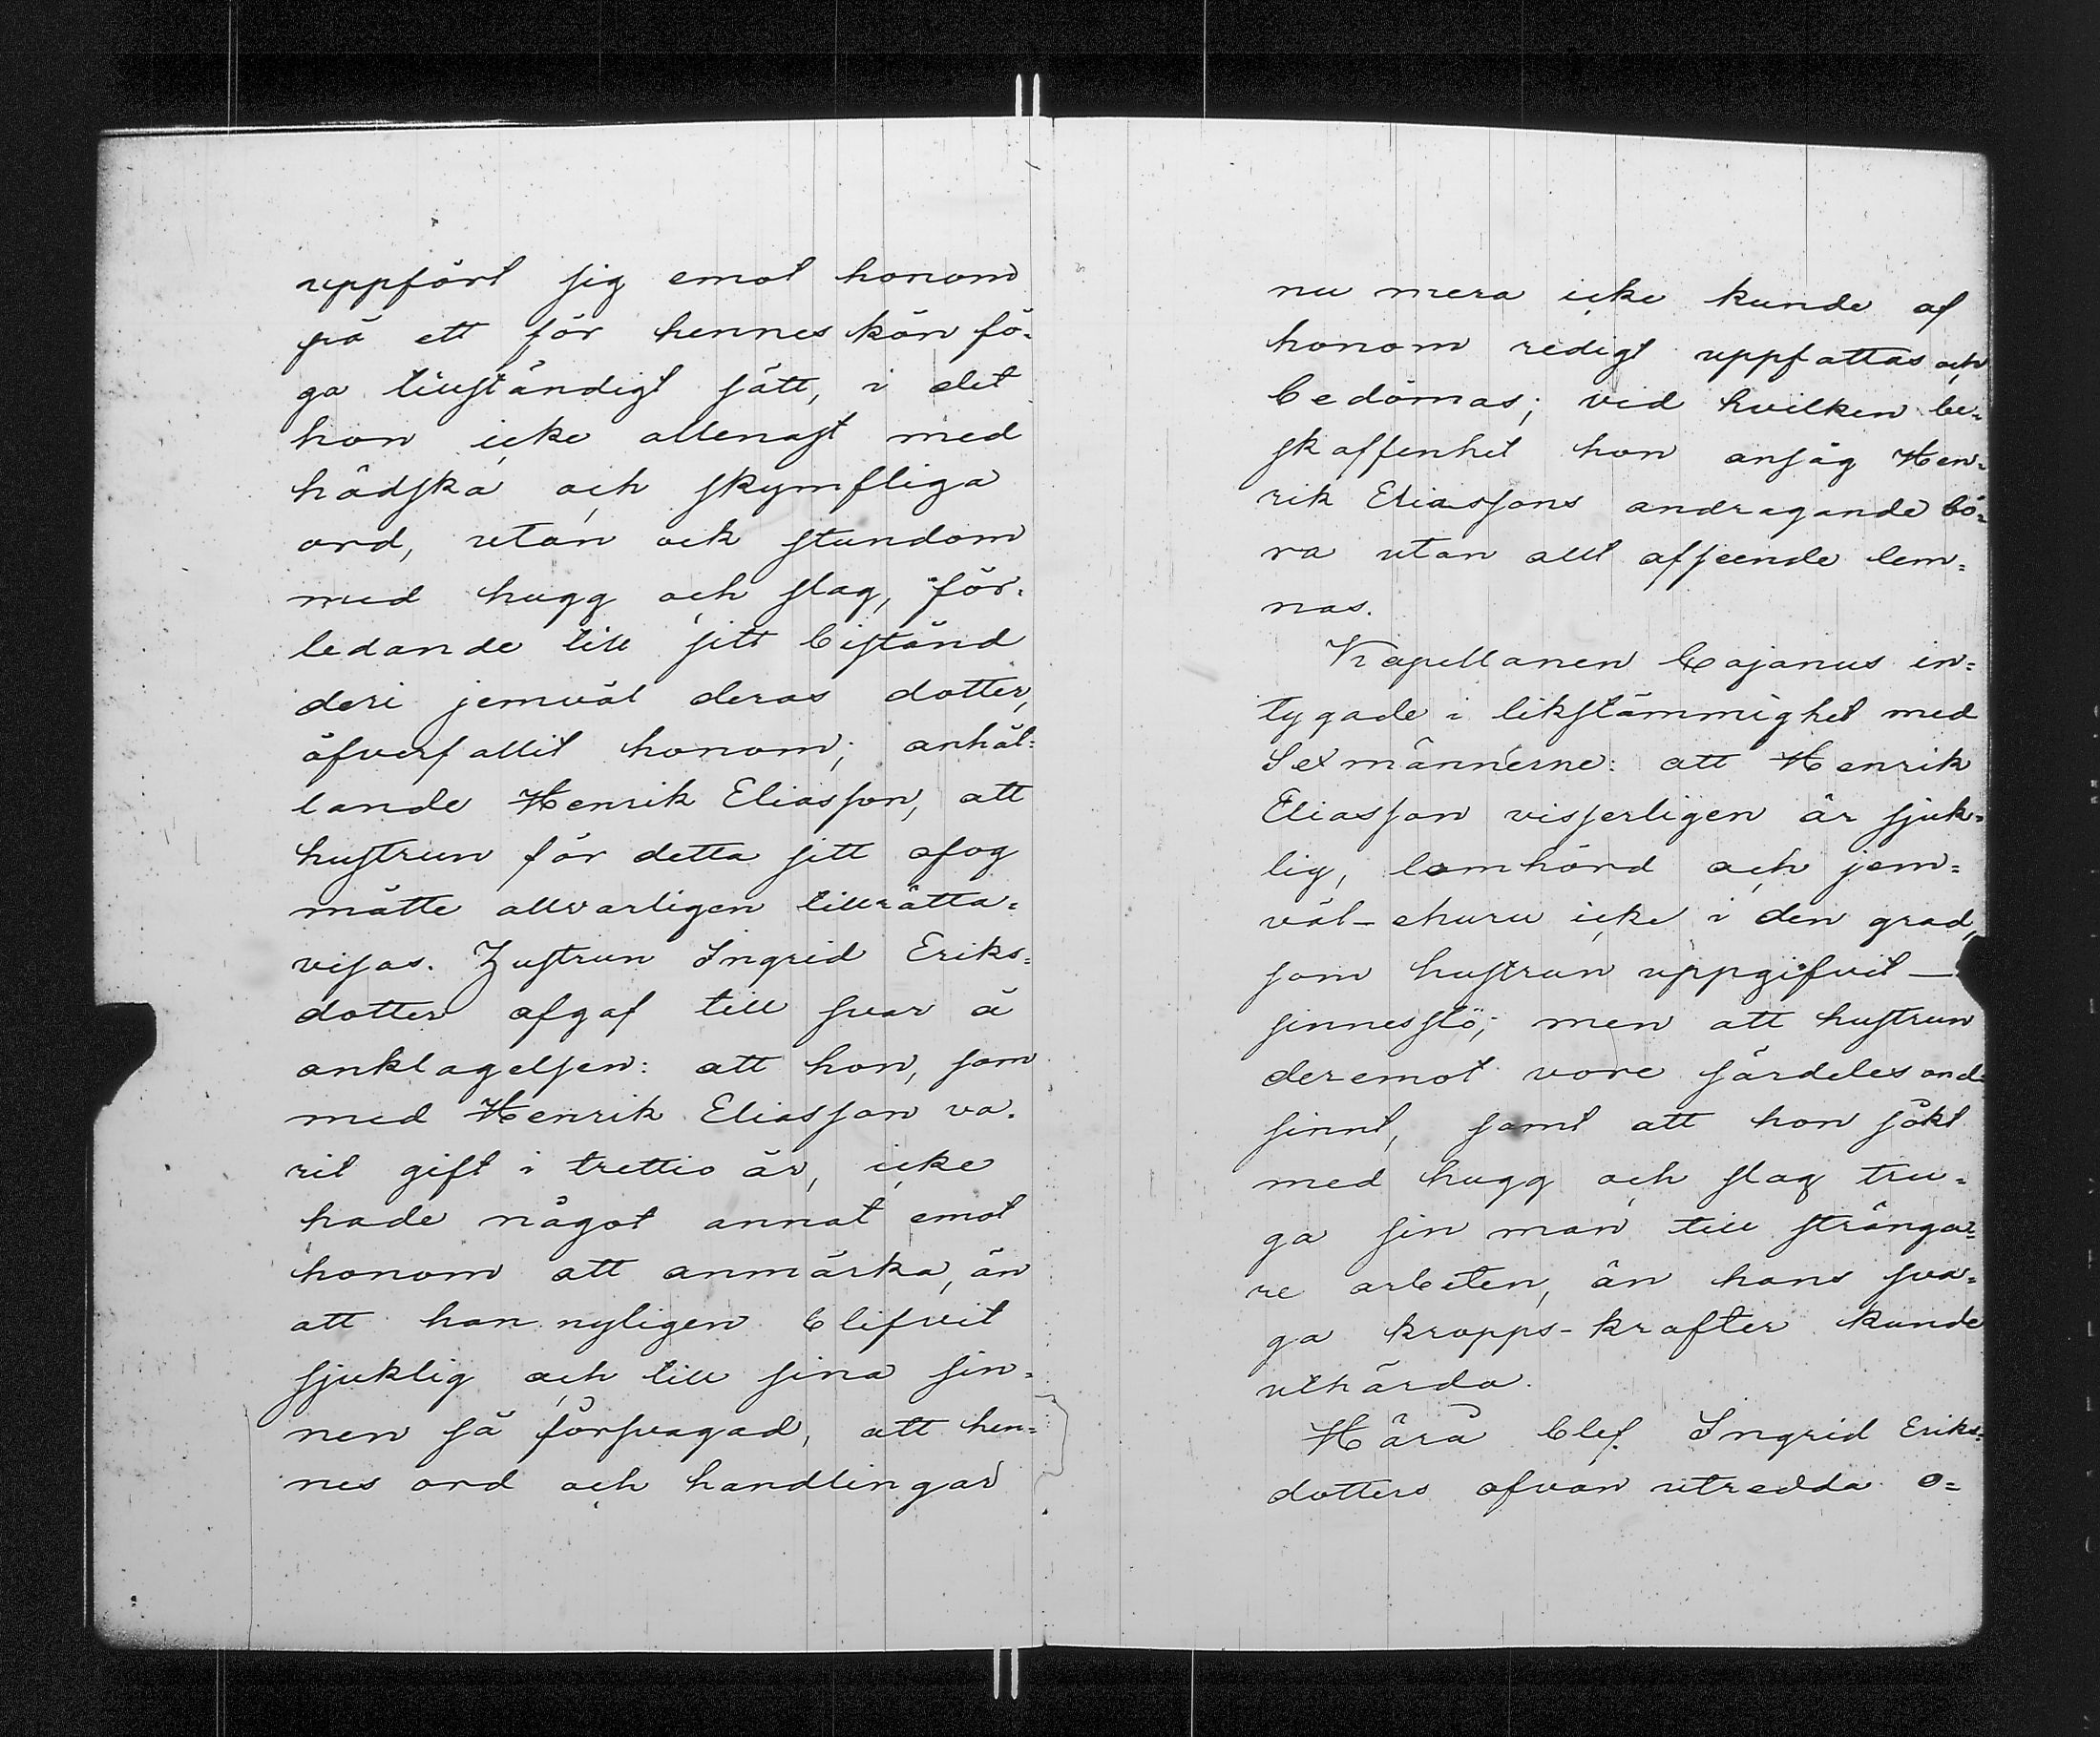 uppfört sig emot honom
på ett för hennes kön fö=
ga tillständigt sätt, i det
hon icke allenast med
hädska och skymfliga
ord, utan ock stundom
med hugg och slag, för=
ledande till sitt bistånd
deri jemväl deras dotter,
öfverfallit honom; anhål=
lande Henrik Eliasson, att
hustrun för detta sitt ofog
måtte allvarligen tillrätta=
visas. Hustrun Ingrid Eriks=
dotter afgaf till svar å
anklagelsen: att hon, som
med Henrik Eliasson va=
rit gift i trettio år, icke
hade något annat emot
honom att anmärka, än
att han nyligen blifvit
sjuklig och till sina sin=
nen så försvagad, att hen=
nes ord och handlingar
nu mera icke kunde af
honom redigt uppfattas och
bedömas; vid hvilken be=
skaffenhet hon ansåg Hen=
rik Eliassons andragande bö=
ra utan allt afseende lem=
nas.
Kapellanen Cajanus in=
tygade i likstämmighet med
Sexmännerne: att Henrik
Eliasson visserligen är sjuk=
lig, lomhörd och jem=
väl - ehuru icke i den grad,
som hustrun uppgifvit -
sinnesslö; men att hustrun
deremot vore särdeles ond=
sint, samt att hon sökt
med hugg och slag tru=
ga sin man till stränga=
re arbeten, än hans sva=
ga kropps-krafter kunde
uthärda.
Härå blef Ingrid Eriks=
dotters ofvan utredda o=